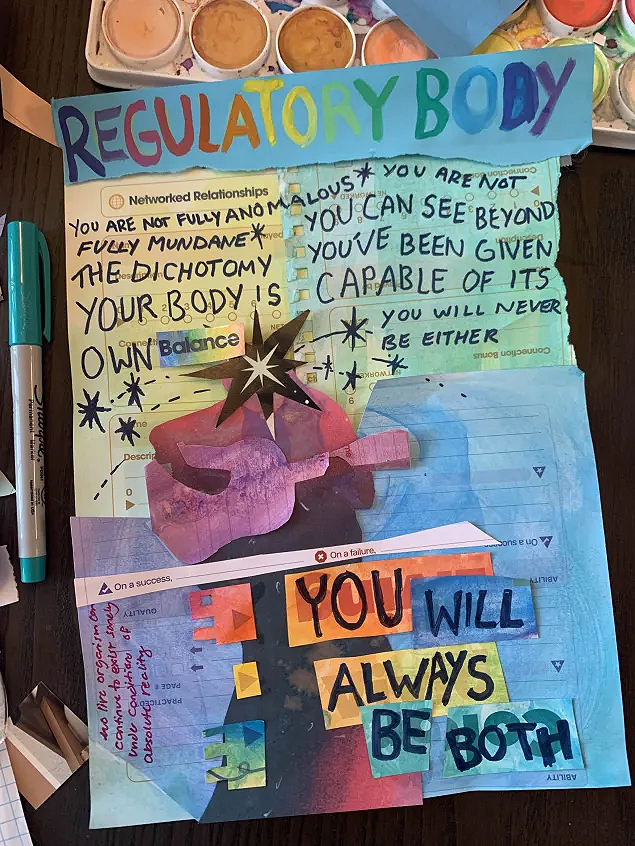 REGULATORY BODY
Networked Relationships
YOU ARE NOT FULLY ANOMALOUS* YOU ARE NOT
FULLY MUNDANE*
YOU CAN SEE BEYOND
THE DICHOTOMY
YOU'VE BEEN GIVEN
YOUR BODY IS
CAPABLE OF ITS
OWN Balance
* YOU WILL NEVER
BE EITHER
Connection Bonus
On a failure,
On a success,
On a success
YOU WILL
ALWAYS
BE BOTH
ABILITY
ABILITY
QUALITY
PAGE #
PRACTICED
no live organism can
continue to exist sanely
under conditions of
absolute reality